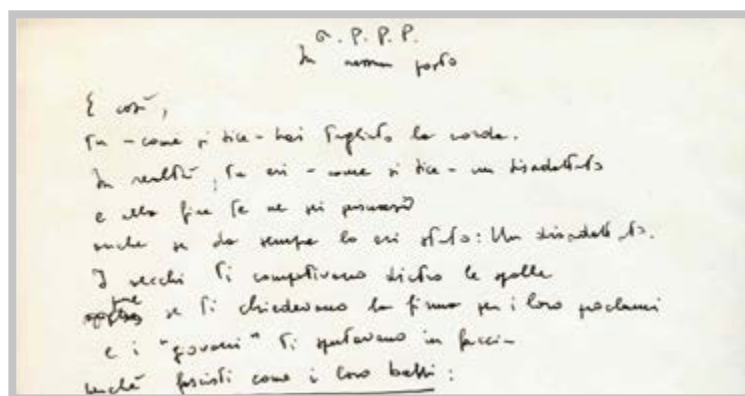 a. P. P. P.
In nessun posto
E così,
tu - come si dice - hai tagliato la corda.
In realtà, tu eri - come si dice - un disadattato
e alla fine te ne sei persuaso
anche se da sempre lo eri stato: Un disadattato.
I vecchi ti compativano dietro le spalle
pure se ti chiedevano la firma per i loro proclami
e i "giovani" ti sputavano in faccia
perché fascisti come i loro baffi: